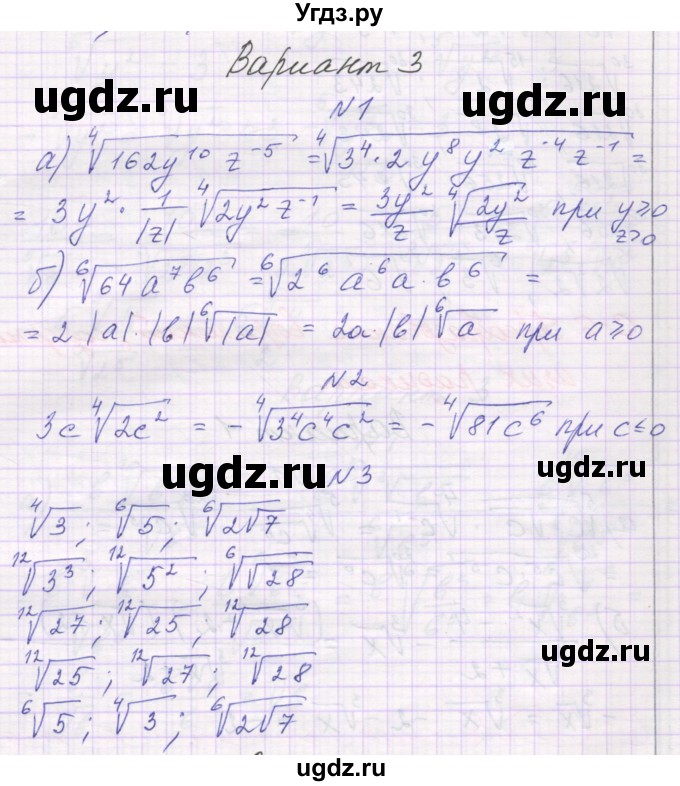 Угдз.ру
Вариант 3
ugdz.ru ugdz.ru
N1
а) ⁴√(162y¹⁰ z⁻⁵) = ⁴√(3⁴·2 y⁸y² z⁻⁴ z⁻¹) =
= 3y² · 1/|z| ⁴√(2y² z⁻¹) = 3y²/z ⁴√(2y²/z) при y≥0 z≥0
б) ⁶√(64a⁷в⁶) = ⁶√(2⁶ a⁶a·в⁶) =
= 2|a|·|в| ⁶√|a| = 2a·|в| ⁶√a при a≥0
N2
3c ⁴√(2c²) = -⁴√(3⁴c⁴c²) = -⁴√(81c⁶) при c≤0
ugdz.ru N3 ugdz.ru
⁴√3; ⁶√5; ⁶√(2√7)
¹²√(3³); ¹²√(5²); ⁶√(√28)
¹²√27; ¹²√25; ¹²√28
ugdz.ru
¹²√25; ¹²√27; ¹²√28
⁶√5; ⁴√3; ⁶√(2√7)
ugdz.ru
ugdz.ru